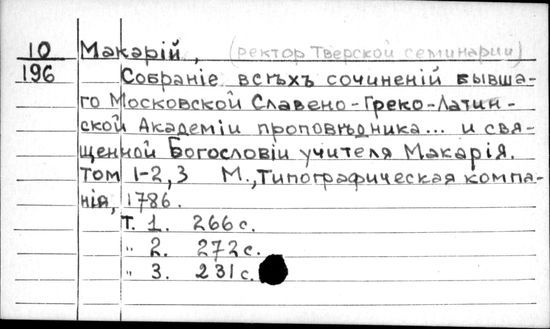 10 Макарій, (ректор Тверской семинарии)
196 Собраніе всѣхъ сочиненій бывша-
го Московской Славено-Греко-Латин-
ской Академіи проповѣдника... и свя-
щенной Богословіи учителя Макарія.
Том 1-2,3 М., Типографическая компа-
нія, 1786.
Т. 1. 266 с.
" 2. 272 с.
" 3. 231 с.